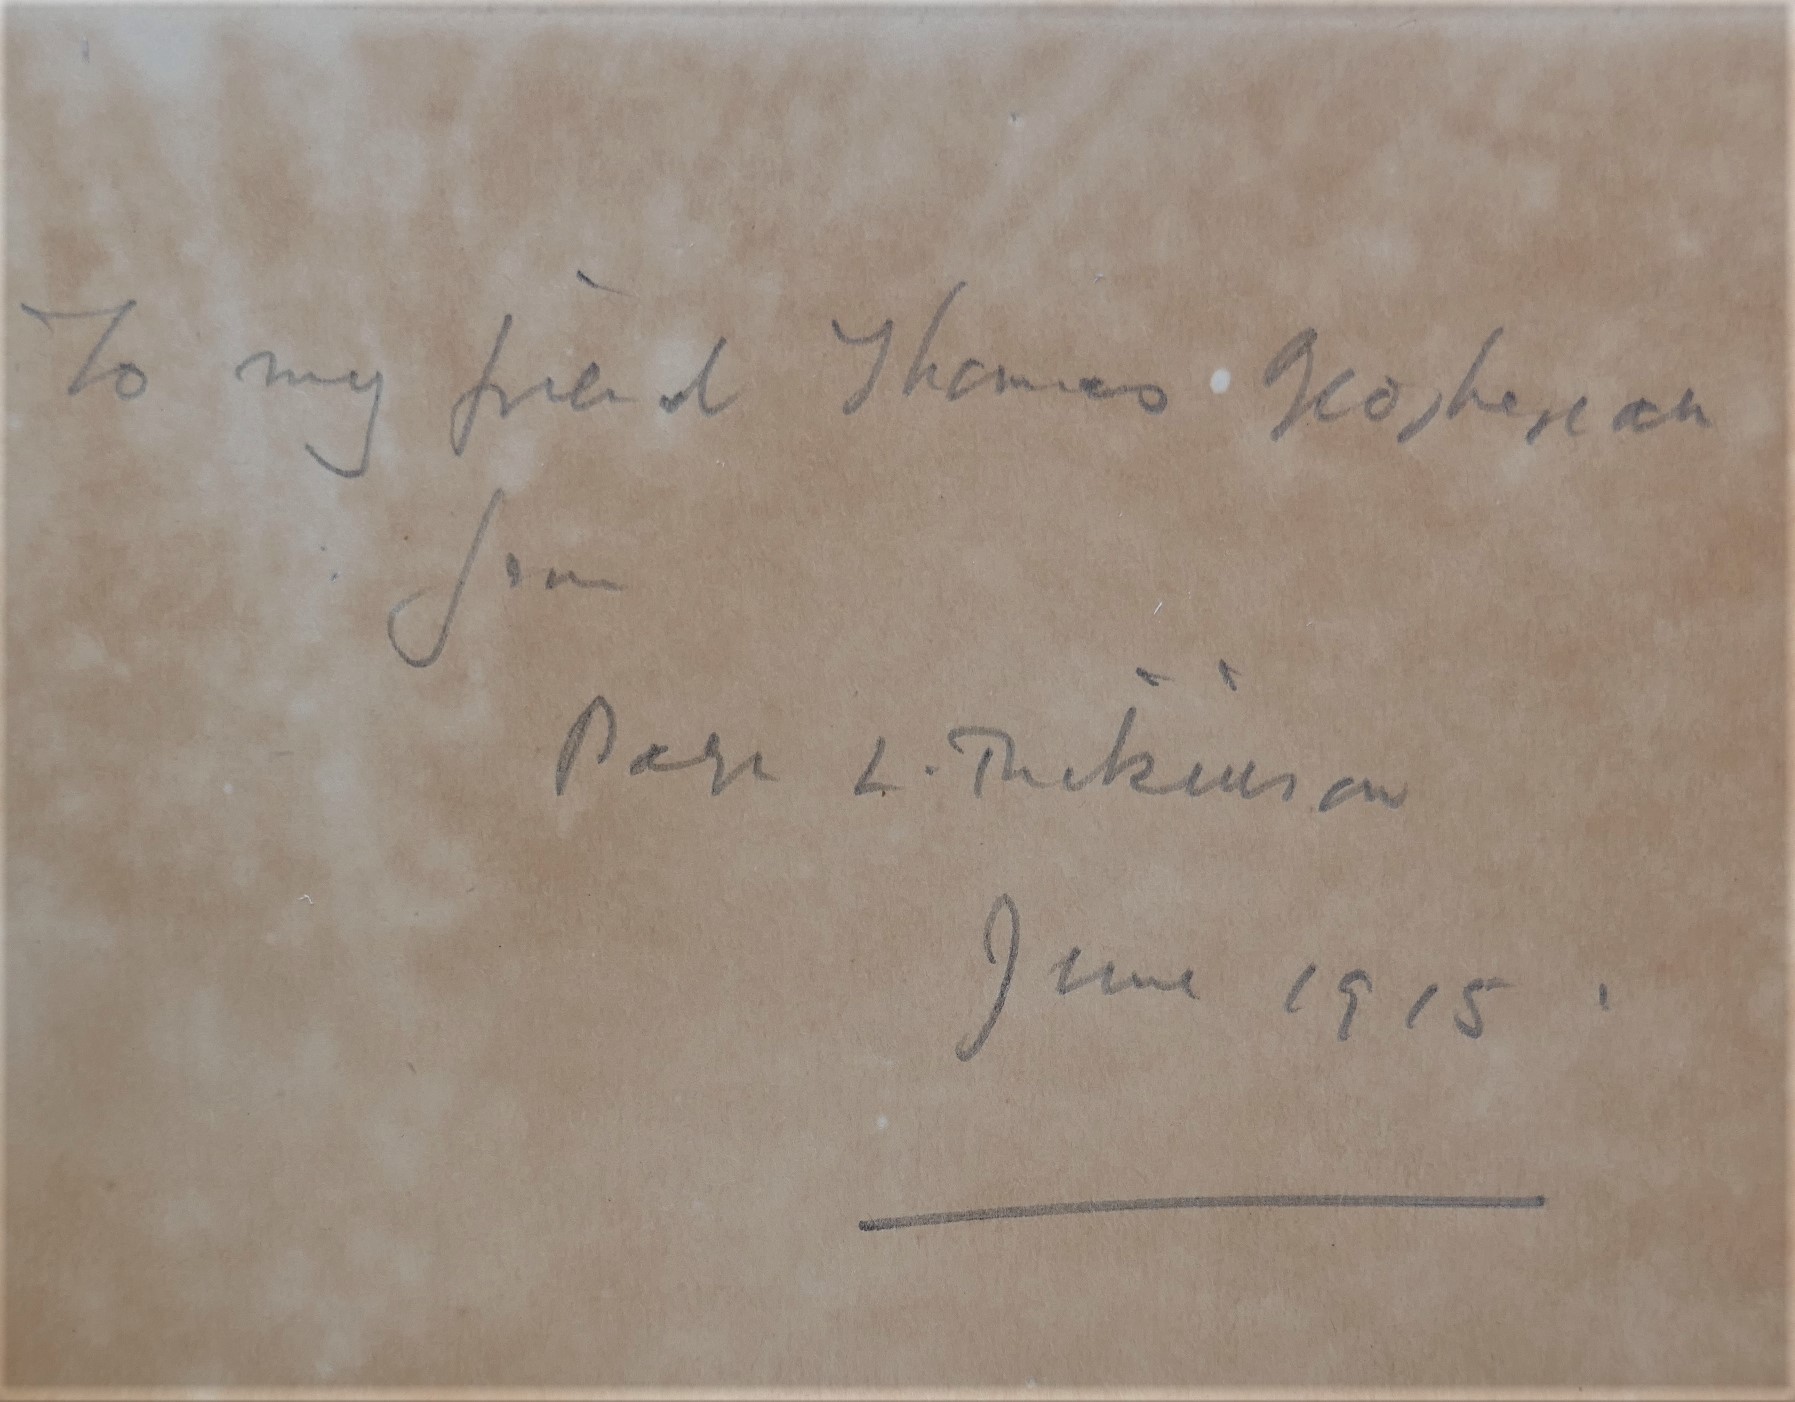 To my friend Thomas Geoghegan
from
Page L. Dickinson
June 1915.